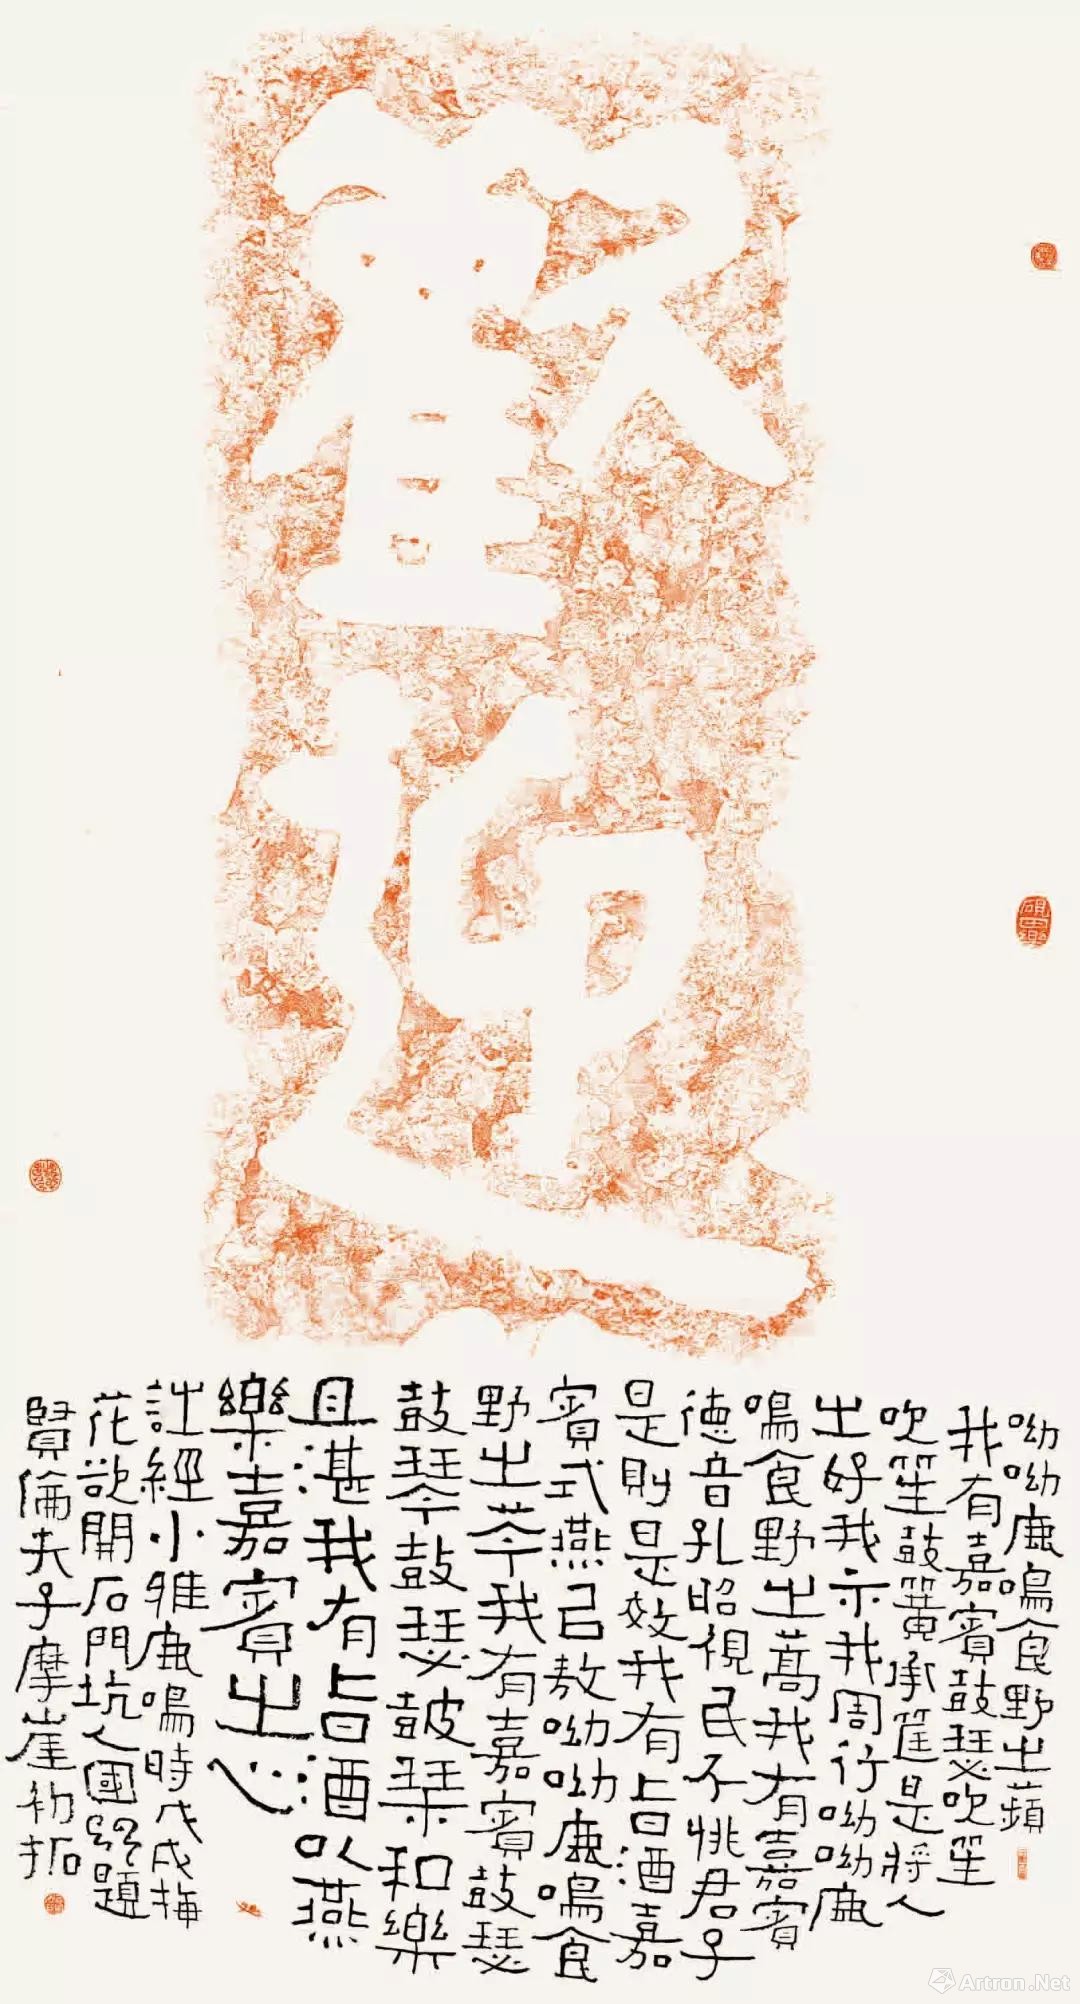 歡迎
呦呦鹿鳴食野之蘋
我有嘉賓鼓瑟吹笙
吹笙鼓簧承筐是將人
之好我示我周行呦呦鹿
鳴食野之蒿我有嘉賓
德音孔昭視民不恌君子
是則是效我有旨酒嘉
賓式燕以敖呦呦鹿鳴食
野之芩我有嘉賓鼓瑟
鼓琴鼓瑟鼓琴和樂
且湛我有旨酒以燕
樂嘉賓之心
詩經小雅鹿鳴時戊戌梅
花欲開石門坑人國題
賢倫夫子摩崖初拓
Artron.Net